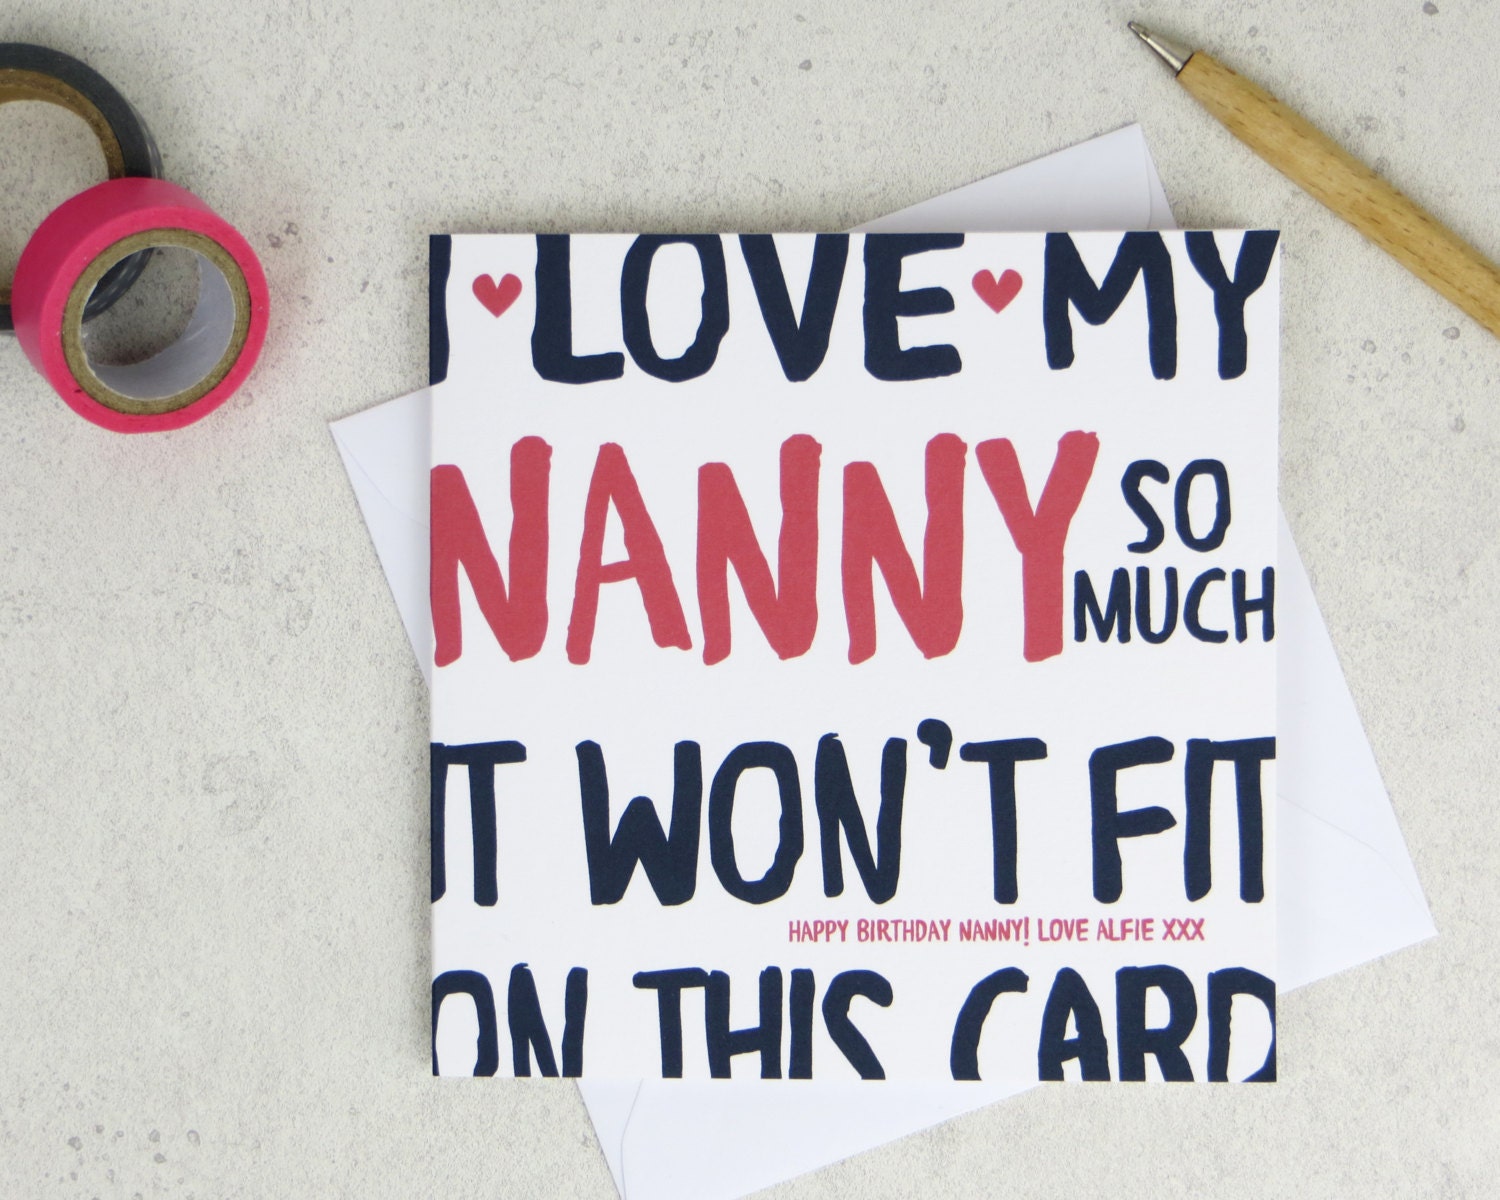 I ♥ LOVE ♥ MY
NANNY SO MUCH
IT WON'T FIT
HAPPY BIRTHDAY NANNY! LOVE ALFIE XXX
ON THIS CARD